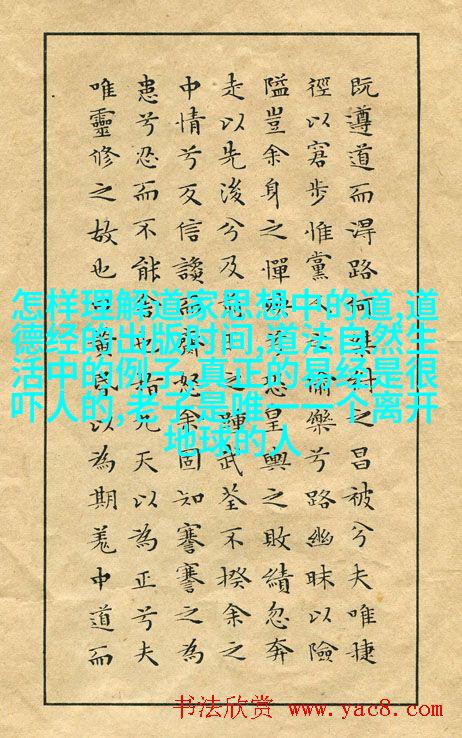 既遵道而淂路何桀紂之昌被兮夫唯捷
徑以窘步惟黨人之偷樂兮路幽昧以險
隘豈余身之憚殃兮恐皇輿之敗績忽奔
走以先後兮及前王之踵武荃不揆余之
中情兮反信讒而齌怒余固知謇謇之為
患兮忍而不能舍也指九天以為正兮夫
唯靈修之故也曰黃昏以為期羌中道而
怎样理解道家思想中的道,道
德经的出版时间,道法自然生
活中的例子,真正的易经是很
吓人的,老子是唯一一个离开
地球的人
书法欣赏 www.yac8.com